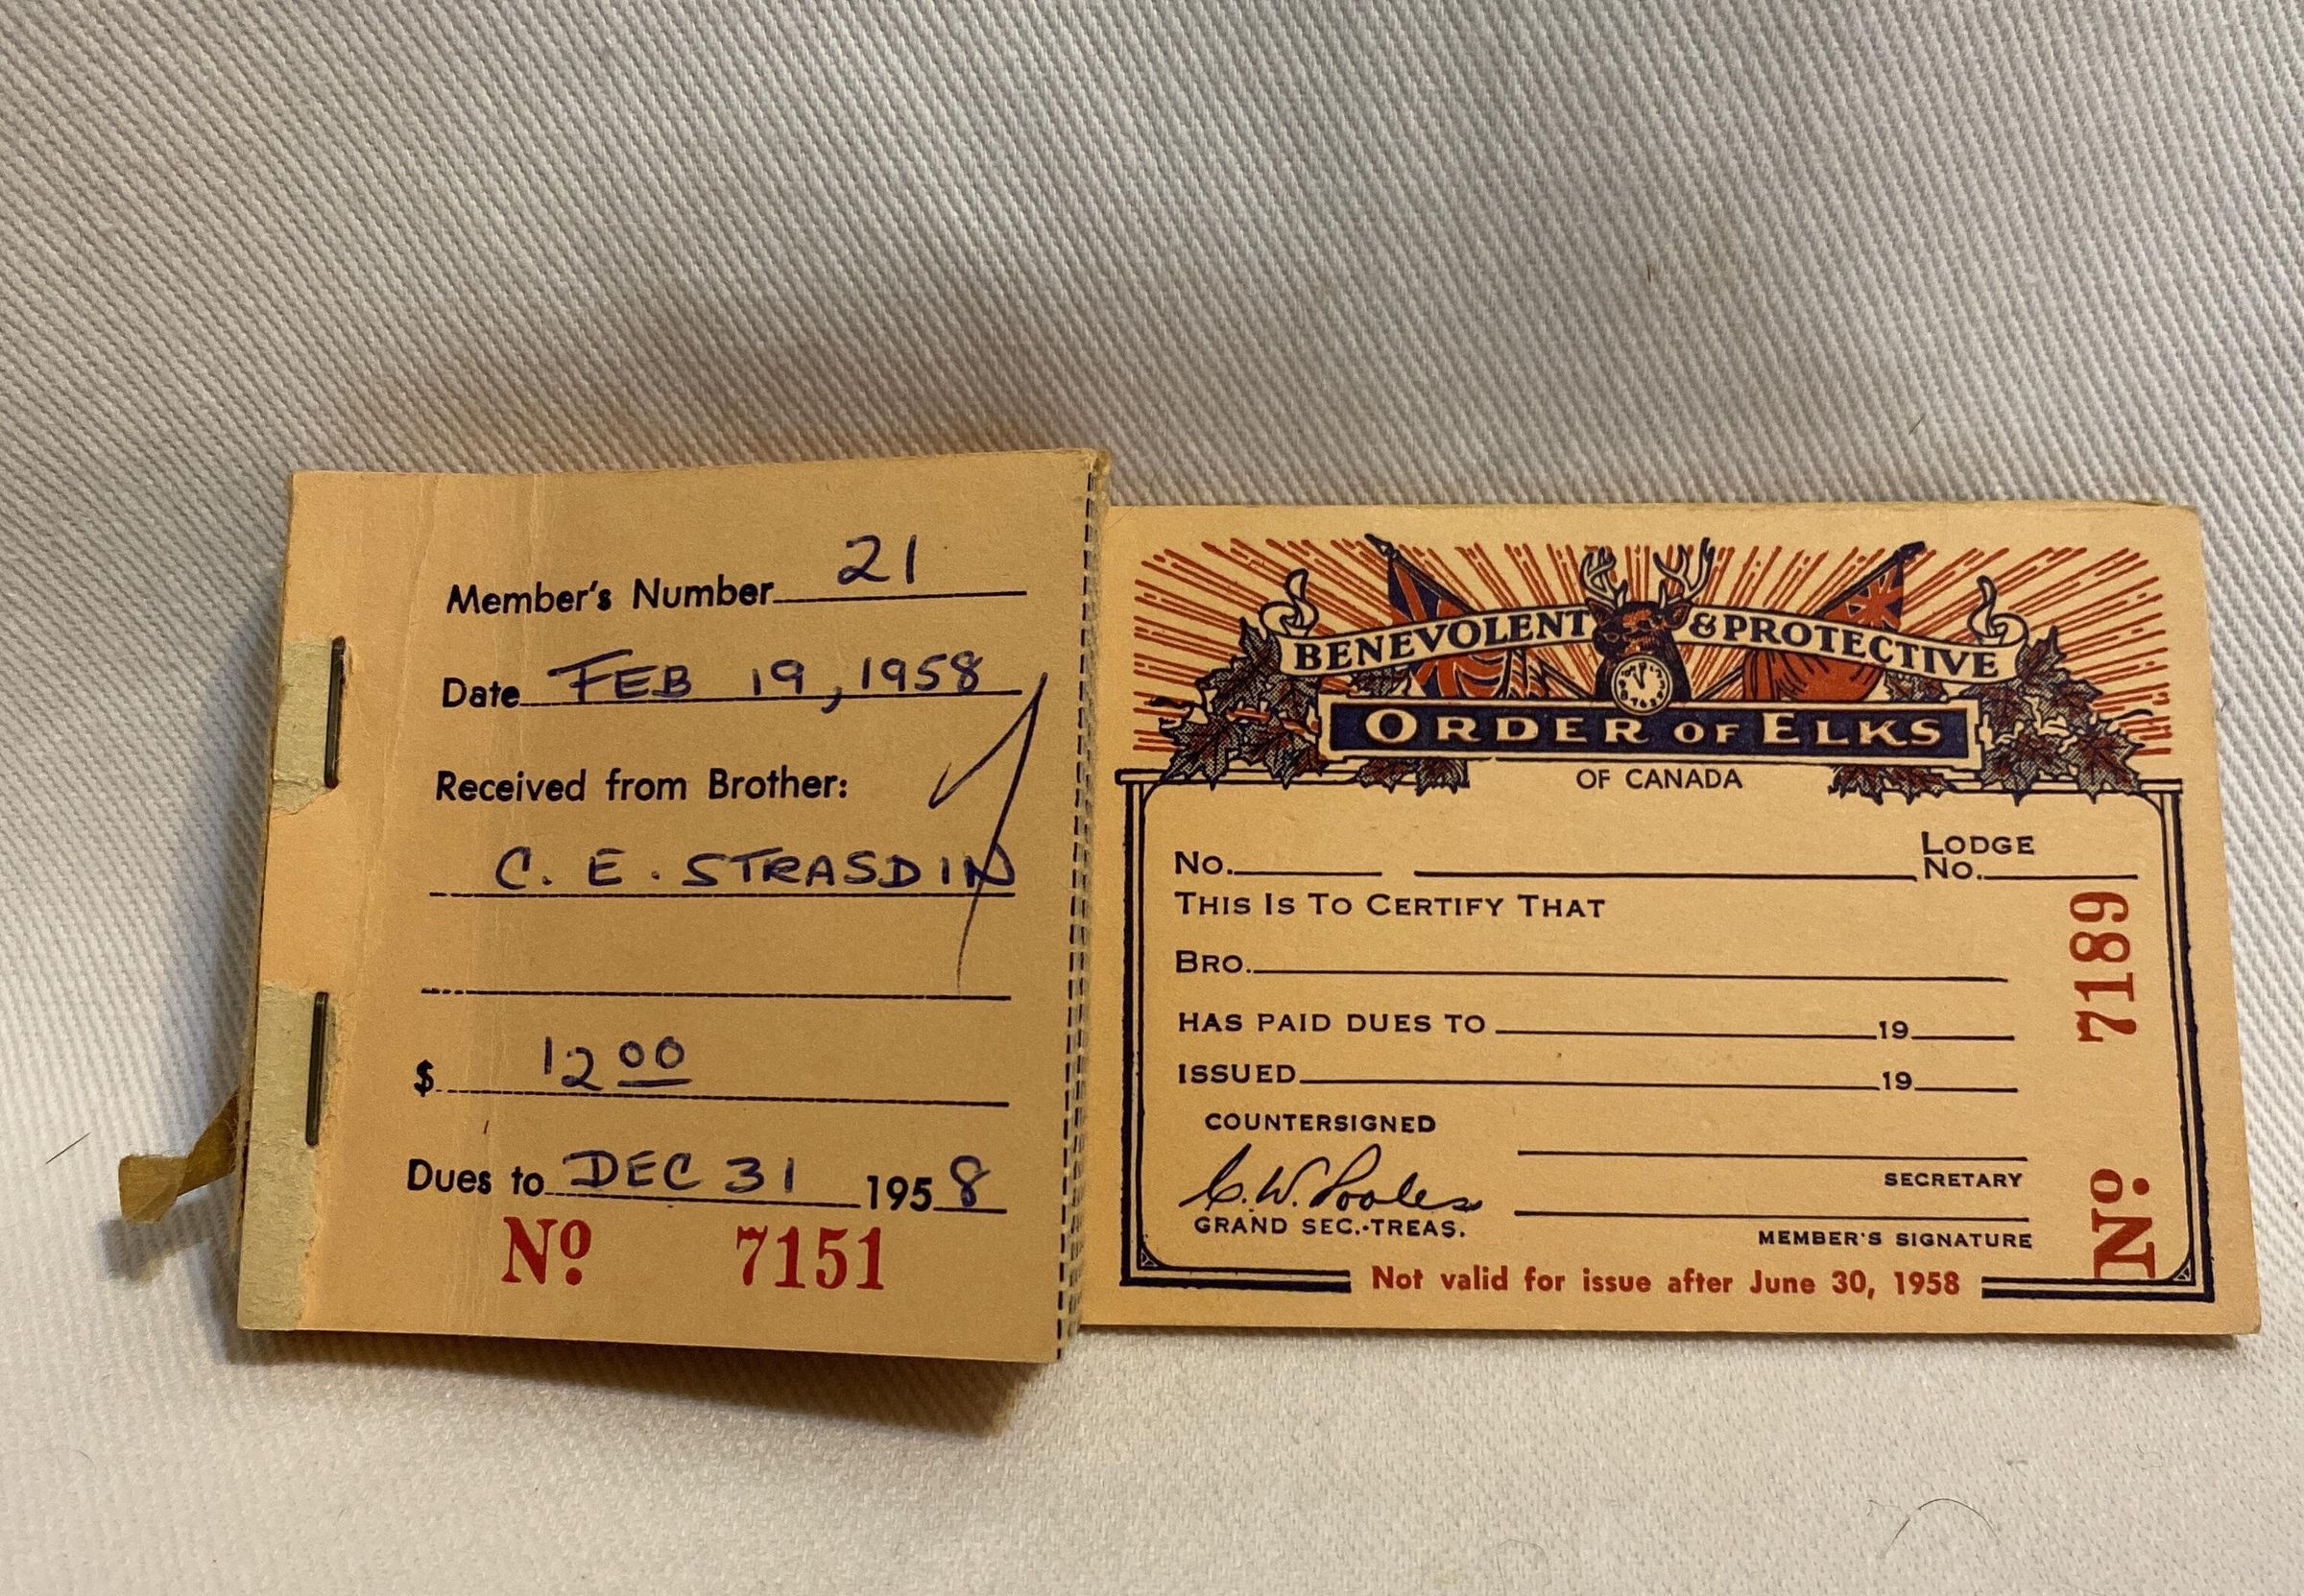 Member's Number 21
Date FEB 19, 1958
Received from Brother:
C. E. STRASDIN
$ 12 00
Dues to DEC 31 1958
No. 7151
BENEVOLENT & PROTECTIVE
ORDER OF ELKS
OF CANADA
No. LODGE No.
THIS IS TO CERTIFY THAT
BRO.
HAS PAID DUES TO 19
ISSUED 19
COUNTERSIGNED
C. W. Pooles
SECRETARY
GRAND SEC.-TREAS.
MEMBER'S SIGNATURE
Not valid for issue after June 30, 1958
No. 7189